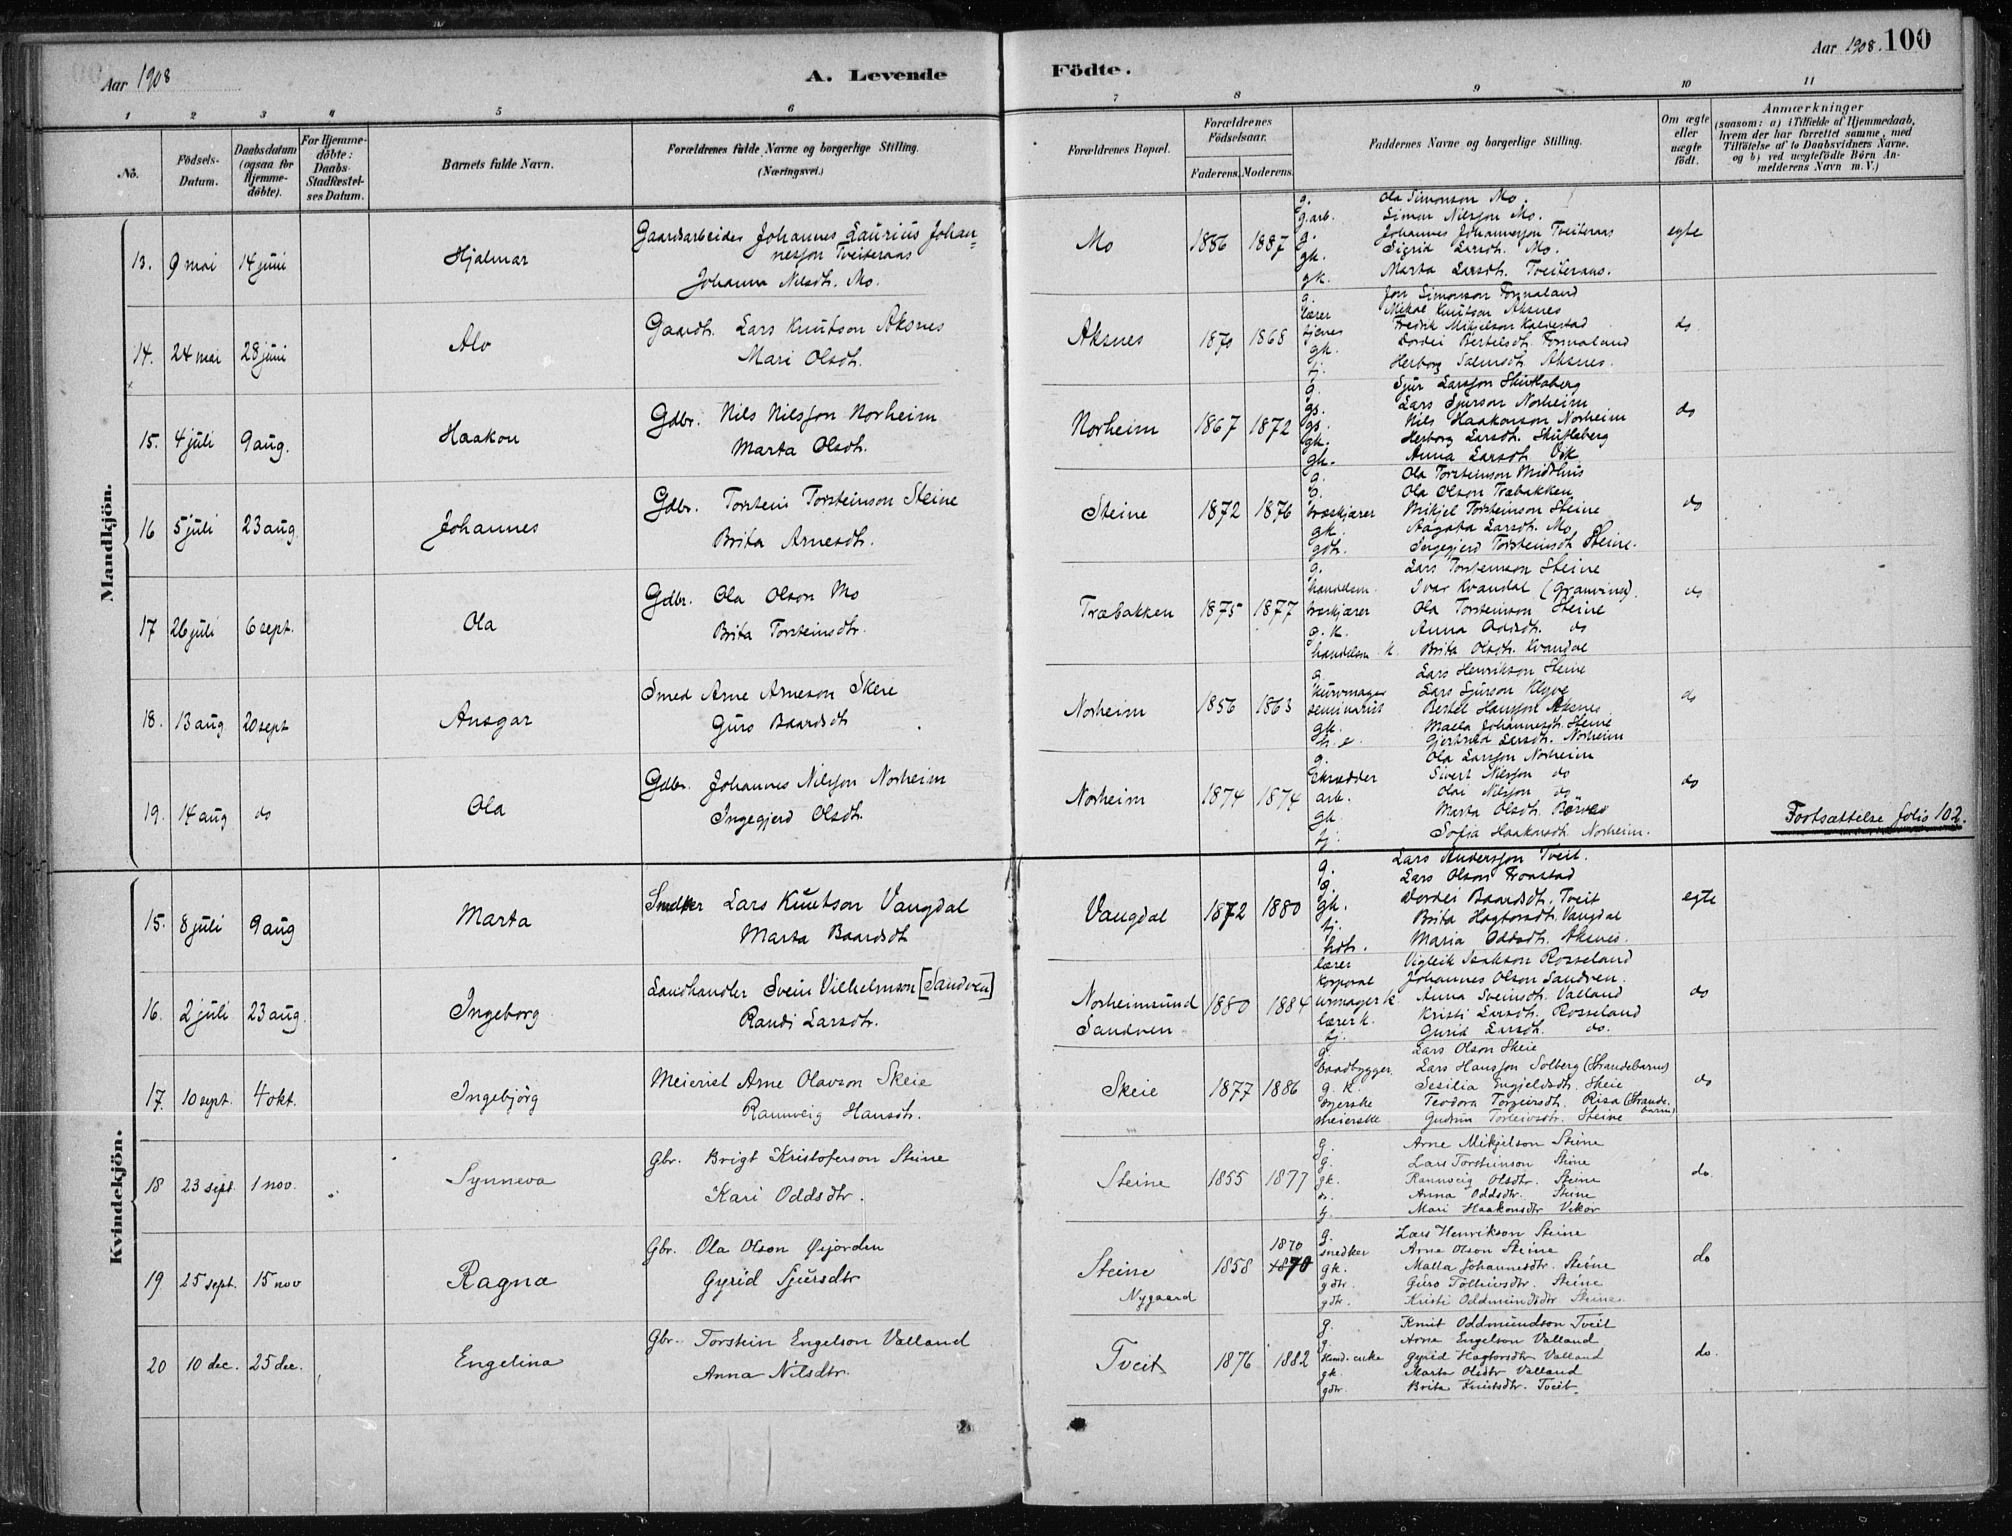 Aar 1908
A. Levende
Födte.
Aar 1908. 100
1 2 3 4 5 6 7 8 9 10 11
No.
Födsels-Datum.
Daabsdatum (ogsaa for Hjemme-döbte).
For Hjemme-döbte: Daabs-Stadfæstel-ses Datum.
Barnets fulde Navn.
Forældrenes fulde Navne og borgerlige Stilling.
(Næringsvei.)
Forældrenes Bopæl.
Forældrenes Födselsaar.
Faderens. Moderens.
Faddernes Navne og borgerlige Stilling.
Om ægte eller uægte födt.
Anmærkninger
(saasom: a) i Tilfælde af Hjemmedaab,
hvem der har forrettet samme, med
Tilföielse af to Daabsvidners Navne.
og b) ved uægtefödte Börn An-
melderens Navn m. V.)
Mandkjön.
13. 9 mai 14 juni Hjalmar
Gaardsarbeider Johannes Laurius Johan=
nesson Tveiteraas
Johanna Nilsdtr. Mo.
Mo 1886 1887 egte
g. Ola Simonson Mo.
g.arb. Simon Nilsson Mo.
g. Johannes Johannesson Tveiteraas
gk. Sigrid Larsdtr. Mo.
gk. Marta Larsdtr. Tveiteraas.
14. 24 mai 28 juni Alv
Gaardb. Lars Knutson Aksnes
Mari Olsdtr.
Aksnes 1870 1868 do
g. Jon Simonson Tormaland
lærer Mikal Knutson Aksnes
tjener Fredrik Mikjelson
gk. Dordei Bertelsdtr. Tormaland
tj. Herborg Salmsdtr. Aksnes.
15. 4 juli 9 aug. Haakon
Gdbr. Nils Nilsson Norheim
Marta Olsdtr.
Norheim 1867 1872 do
g. Sjur Larsson Skutlaberg
gs. Lars Sjurson Norheim
gs. Nils Haakonson Norheim
gk. Herborg Larsdtr. Skutlaberg
gk. Anna Larsdtr. Vik
16 5 juli 23 aug Johannes
Gdbr. Torstein Torsteinson Steine
Brita Arnesdtr.
Steine 1872 1876 do
g. Ola Torsteinson Midthus
g. Ola Olson Træbakken
træskjærer Mikjel Torsteinson Steine
gk. Aagata Larsdtr. Mo
gdtr. Ingegjerd Torsteinsdtr Steine.
17 26 juli 6 sept. Ola
Gdbr. Ola Olson Mo
Brita Torsteinsdtr.
Træbakken 1875 1877 do
g. Lars Torsteinson Steine
handelsm. Ivar Kvandal (Granvin)
træskjærer Ola Torsteinson Steine
g. k. Anna Oddsdtr. do
handelsm. k. Brita Olsdtr. Kvandal
18. 13 aug 20 sept Ansgar
Smed Arne Arneson Skeie
Guro Baardsdtr
Norheim 1856 1863 do
g. Lars Henrikson Steine
kurvmager Lars Sjurson Klyve
seminarist Bertel Hansson Aksnes
gk. Malla Johannesdtr. Steine
Gjertrud Larsdtr. Norheim
19. 14 aug do Ola
Gdbr. Johannes Nilsson Norheim
Ingegjerd Olsdtr.
Norheim 1874 1874 do
g. Ola Larsson Norheim
Skrædder Sivert Nilsson do
arb. Olai Nilsson do
gk Marta Olsdtr. Børves
tj. Sofia Haakonsdtr Norheim.
Fortsættelse folio 102.
Kvindekjön.
15. 8 juli 9 aug Marta
Snedker Lars Knutson Vangdal
Marta Baardsdtr
Vangdal 1872 1880 egte
g. Lars Andersson Tveit.
g. Lars Olson Trostad
gk. Dordei Baardsdtr. Tveit
tj. Brita Hagtorsdtr. Vangdal
hdtr. Maria Oddsdtr. Aksnes.
16. 2 juli 23 aug. Ingeborg
Landhandler Svein Vilhelmson [Sandven]
Randi Larsdtr.
Norheimsund
Sandven 1880 1884 do
lærer Vigleik Isakson Rosseland
korporal Johannes Olson Sandven.
urmager k. Anna Sveinsdtr. Valland
lærer k. Kristi Larsdtr. Rosseland
tj. Gurid Larsdtr. do.
17. 10 sept. 4 okt. Ingebjörg
Meierist Arne Olavson Skeie
Rannveig Hansdtr.
Skeie 1877 1886 do
g. Lars Olson Skeie
baadbygger Lars Hansson Solberg (Strandebarm)
g. k. Sesilia Ingjeldsdtr. Skeie
Teodora Torgeirsdtr. Risa (Strande-
barm)
meierske Gudrun Torleivsdtr. Steine
18 23 sept. 1 nov. Synneva
Gbr. Brigt Kristoferson Steine
Kari Oddsdtr.
Steine 1855 1877 do.
g. Arne Mikjelson Steine
g. Lars Torsteinson Steine
gk. Rannveig Olsdtr. Steine
Anna Oddsdtr. Steine
tj. Mari Haakonsdtr Vikør
19 25 sept. 15 nov Ragna
Gbr. Ola Olson Øijorden
Gyrid Sjursdtr
Steine
Nygaard 1858 1870 1870 do
g. Lars Henrikson Steine
snedker Arne Olson Steine
gk. Malla Johannesdtr. Steine
gdtr. Guro Tolleivsdtr. Steine
gdtr. Kristi Oddmundsdtr Steine
20 10 dec. 25 dec. Engelina
Gbr. Torstein Engelson Valland
Anna Nilsdtr.
Tveit 1876 1882 do.
g. Knut Oddmundson Tveit
g. Arne Engelson Valland
Gyrid Hagtorsdtr Valland
gk. Marta Olsdtr Valland
gdtr. Brita Knutsdtr. Tveit